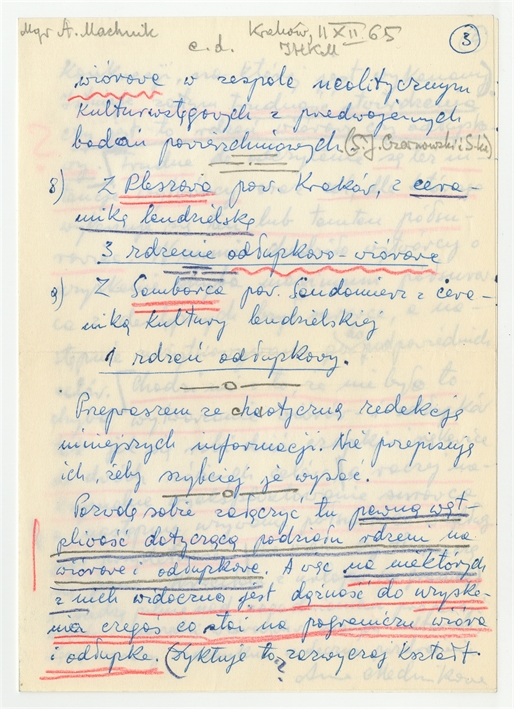 Mgr A. Machnik Kraków, 11 XII 65 3
c.d. IHKM
wiórowe w zespole neolitycznym
kultur wstęgowych z przedwojennych
badań powierzchniowych (S. J. Czarnowski i S-ki)
8) Z Pleszowa pow. Kraków, z cera-
miką lendzielską
3 rdzenie odłupkowo-wiórowe
9) Z Samborca pow. Sandomierz z cera-
miką kultury lendzielskiej
1 rdzeń odłupkowy.
Przepraszam za chaotyczną redakcję
niniejszych informacji. Nie przepisuję
ich, żeby szybciej je wysłać.
Pozwolę sobie załączyć tu pewną wąt-
pliwość dotyczącą podziału rdzeni na
wiórowe i odłupkowe. A więc na niektórych
z nich widoczna jest dążność do uzyska-
nia czegoś co stoi na pograniczu wióra
i odłupka. (Dyktuje to zazwyczaj kształt
?